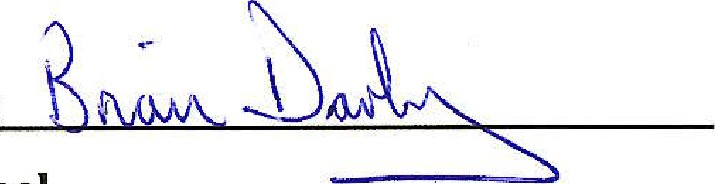 Brian Darby